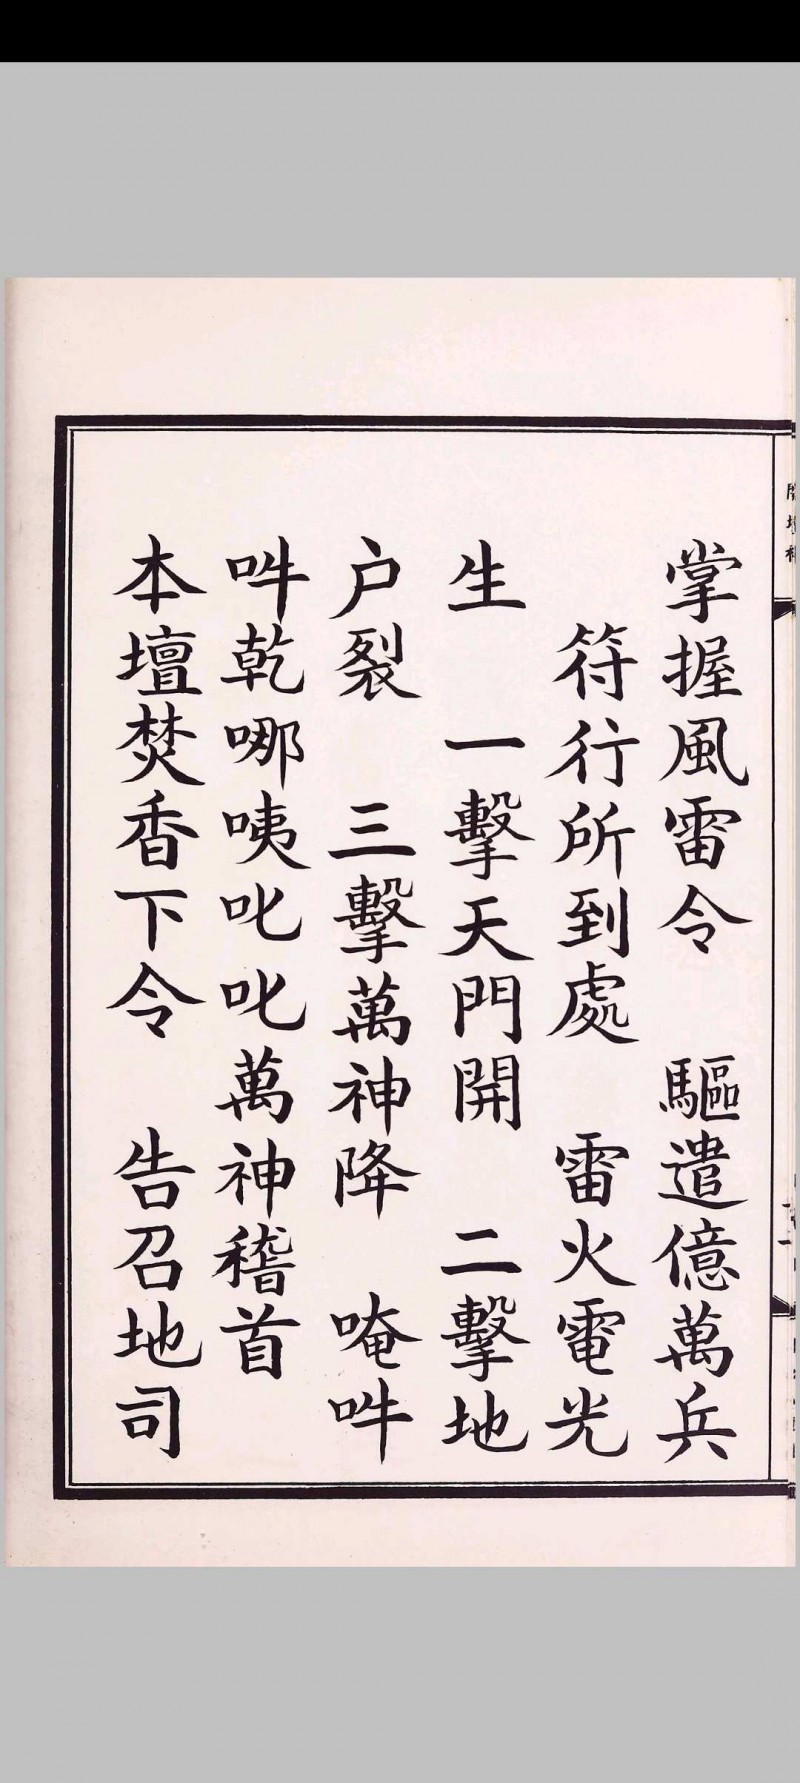 掌握風雷令　驅遣億萬兵
符行所到處　雷火電光
生　一擊天門開　二擊地
户裂　三擊萬神降　唵吽
吽乾哪咦叱叱萬神稽首
本壇焚香下令　告召地司